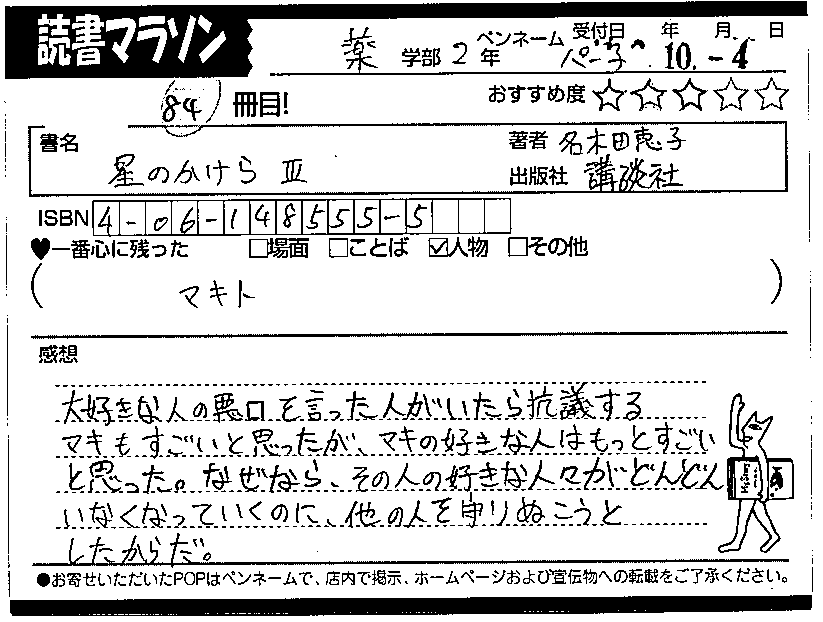 読書マラソン
薬 学部 2 年 ペンネーム パー子 受付日 年 月 日 10.-4
84 冊目! おすすめ度 ☆☆☆☆☆
書名 星のかけら Ⅲ
著者 名木田恵子
出版社 講談社
ISBN 4-06-148555-5
♥一番心に残った □場面 □ことば ☑人物 □その他
( マキト )
感想
大好きな人の悪口を言った人がいたら抗議する
マキもすごいと思ったが、マキの好きな人はもっとすごい
と思った。なぜなら、その人の好きな人々がどんどん
いなくなっていくのに、他の人を守りぬこうと
したからだ。
●お寄せいただいたPOPはペンネームで、店内で掲示、ホームページおよび宣伝物への転載をご了承ください。